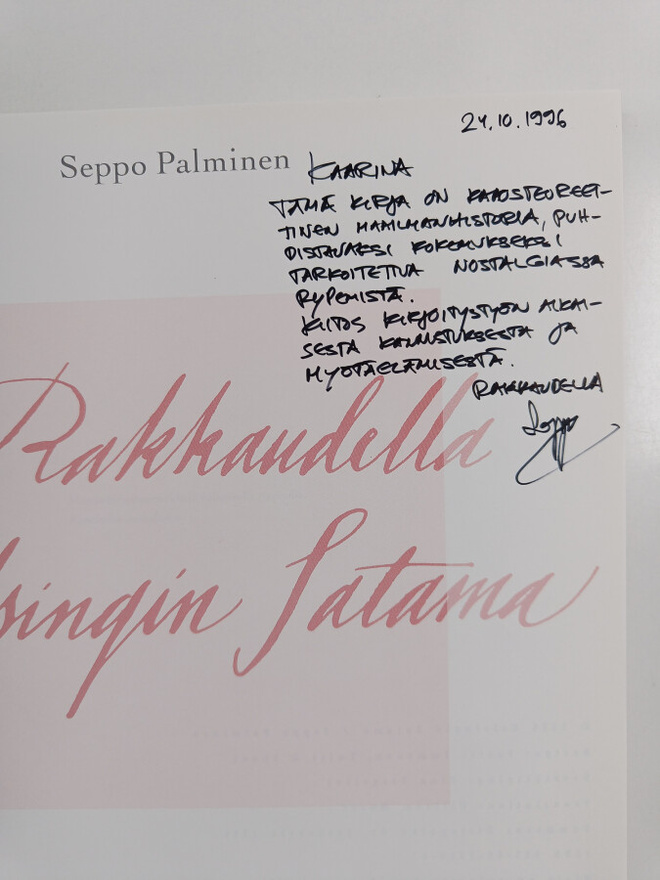 24.10.1996
Seppo Palminen
KAARINA
TÄMÄ KIRJA ON KAAOSTEOREET-
TINEN MAAILMANHISTORIA, PUH-
DISTAVAKSI KOKEMUKSEKSI
TARKOITETTUA NOSTALGIASSA
RYPEMISTÄ.
KIITOS KIRJOITUSTYÖN AIKAI-
SESTA KANNUSTUKSESTA JA
MYÖTÄELÄMISESTÄ.
RAKKAUDELLA
Seppo
Rakkaudella
singin Satama